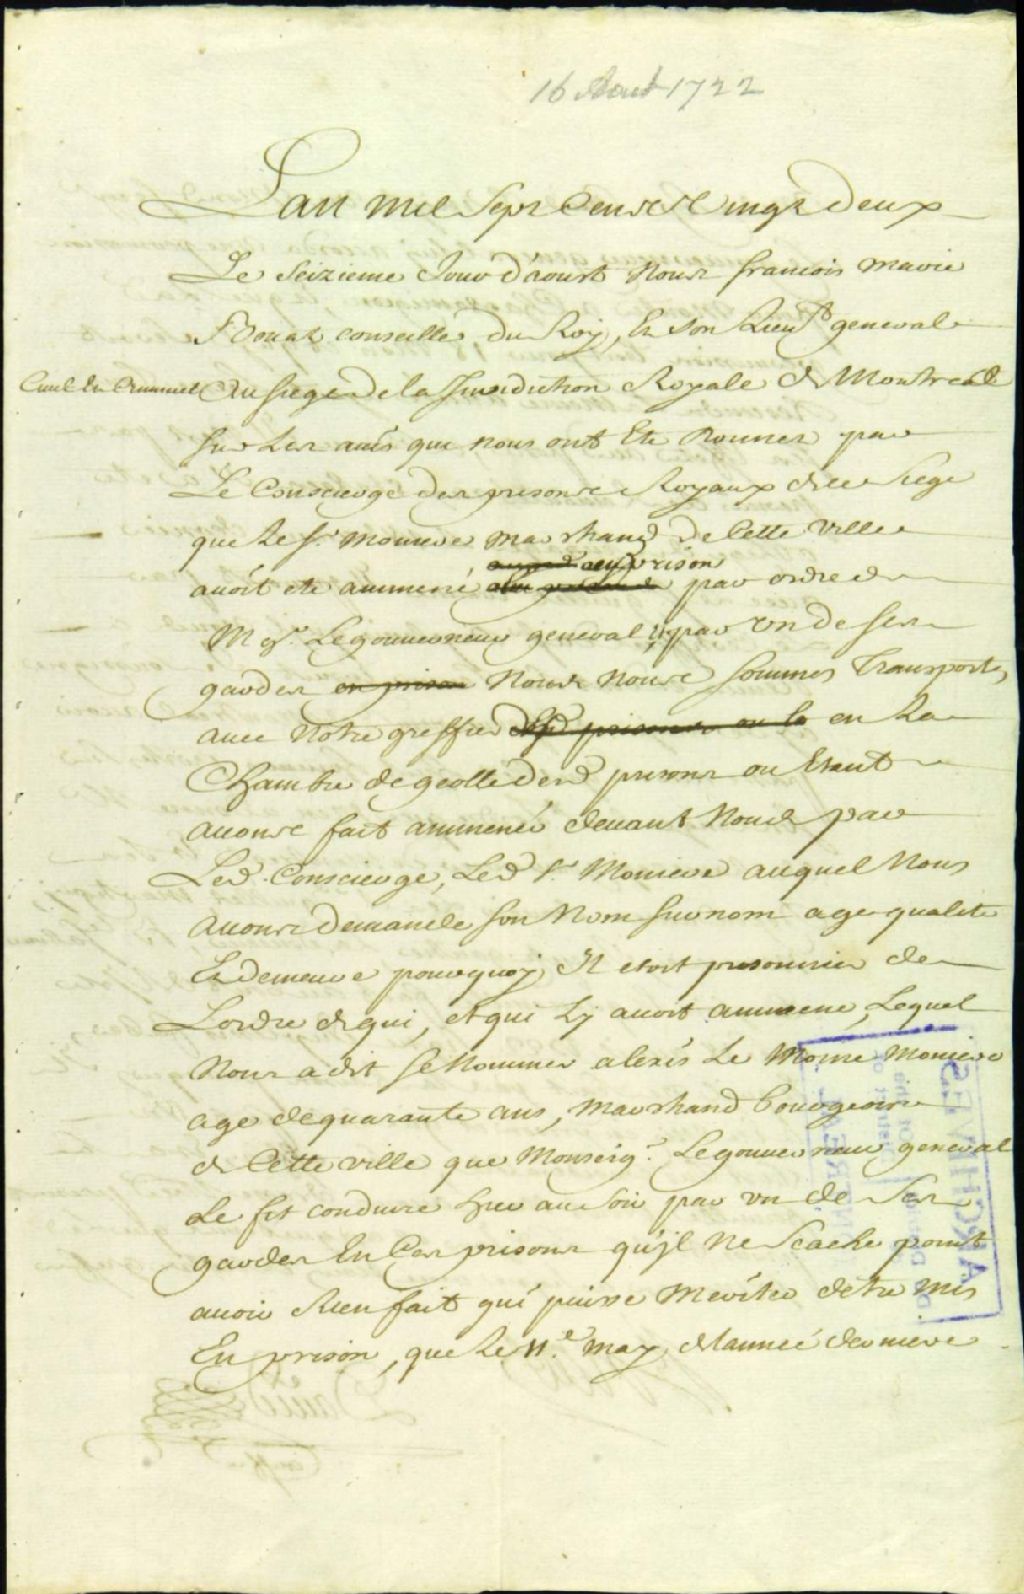 16 Aout 1722
Lan mil Sept Cent Vingt deux
Le Seizieme Jour d'aoust Nous francois Marie
Bouat conseille du Roy, Et Son Lieut. general
Civil Et Criminel Au siege de la Jurisdiction Royale de Montreal
sur Les avis que nous ont Ete Donnes par
Le Conscierge des prisons Royaux de ce Siege
que Le Sr. Moniere marchand de Cette Ville
en prison
avoit ete ammené par ordre de
Mgr. Le gouverneur general par Un de ses
gardes en prison Nous Nous sommes Transporté,
avec Notre greffier prisons ou la en La
Chambre de geolle desd prisons ou Etant
avons fait ammené devant Nous par
Led. Conscierge, Led Sr. Moniere auquel Nous
avons demande son Nom surnom age qualite
Et demeure pourquoy, Il etoit prisonnier de
Lordre de qui, et qui Ly avoit ammene, Lequel
Nous a dit Se Nommer alexis Le Moine Moniere
age de quarante ans, Marchand bourgeois
de Cette ville que Monseigr. Le gouverneur general
Le fit conduire hier au Soir par un de Ses
gardes En Ces prisons qu'jl Ne Scache point
avoir Rien fait qui puisse Meriter detre mis
En prison, que Le 11.e May de lannée derniere